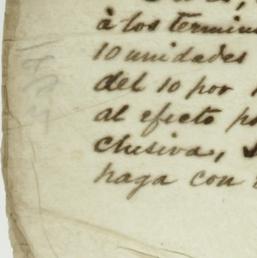 à los termin
10 unidades
del 10 por
al efecto p
clusiva,
haga con